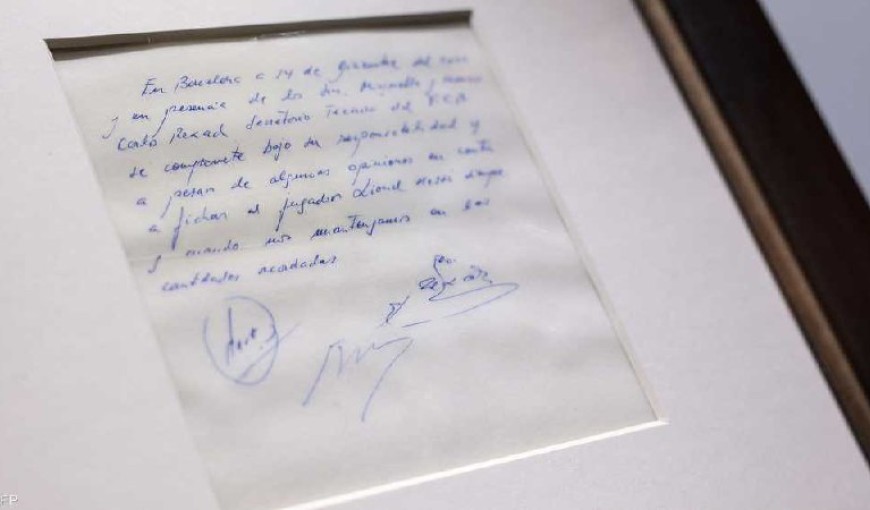 En Barcelona a 14 de diciembre del 2000
y en presencia de los Srs. Minguella y Horacio
Carlos Rexach Secretario Tecnico del F.C.B
se compromete bajo su responsabilidad y
a pesar de algunas opiniones en contra
a fichar al jugador Lionel Messi siempre
y cuando nos mantengamos en las
cantidades acordadas
FP